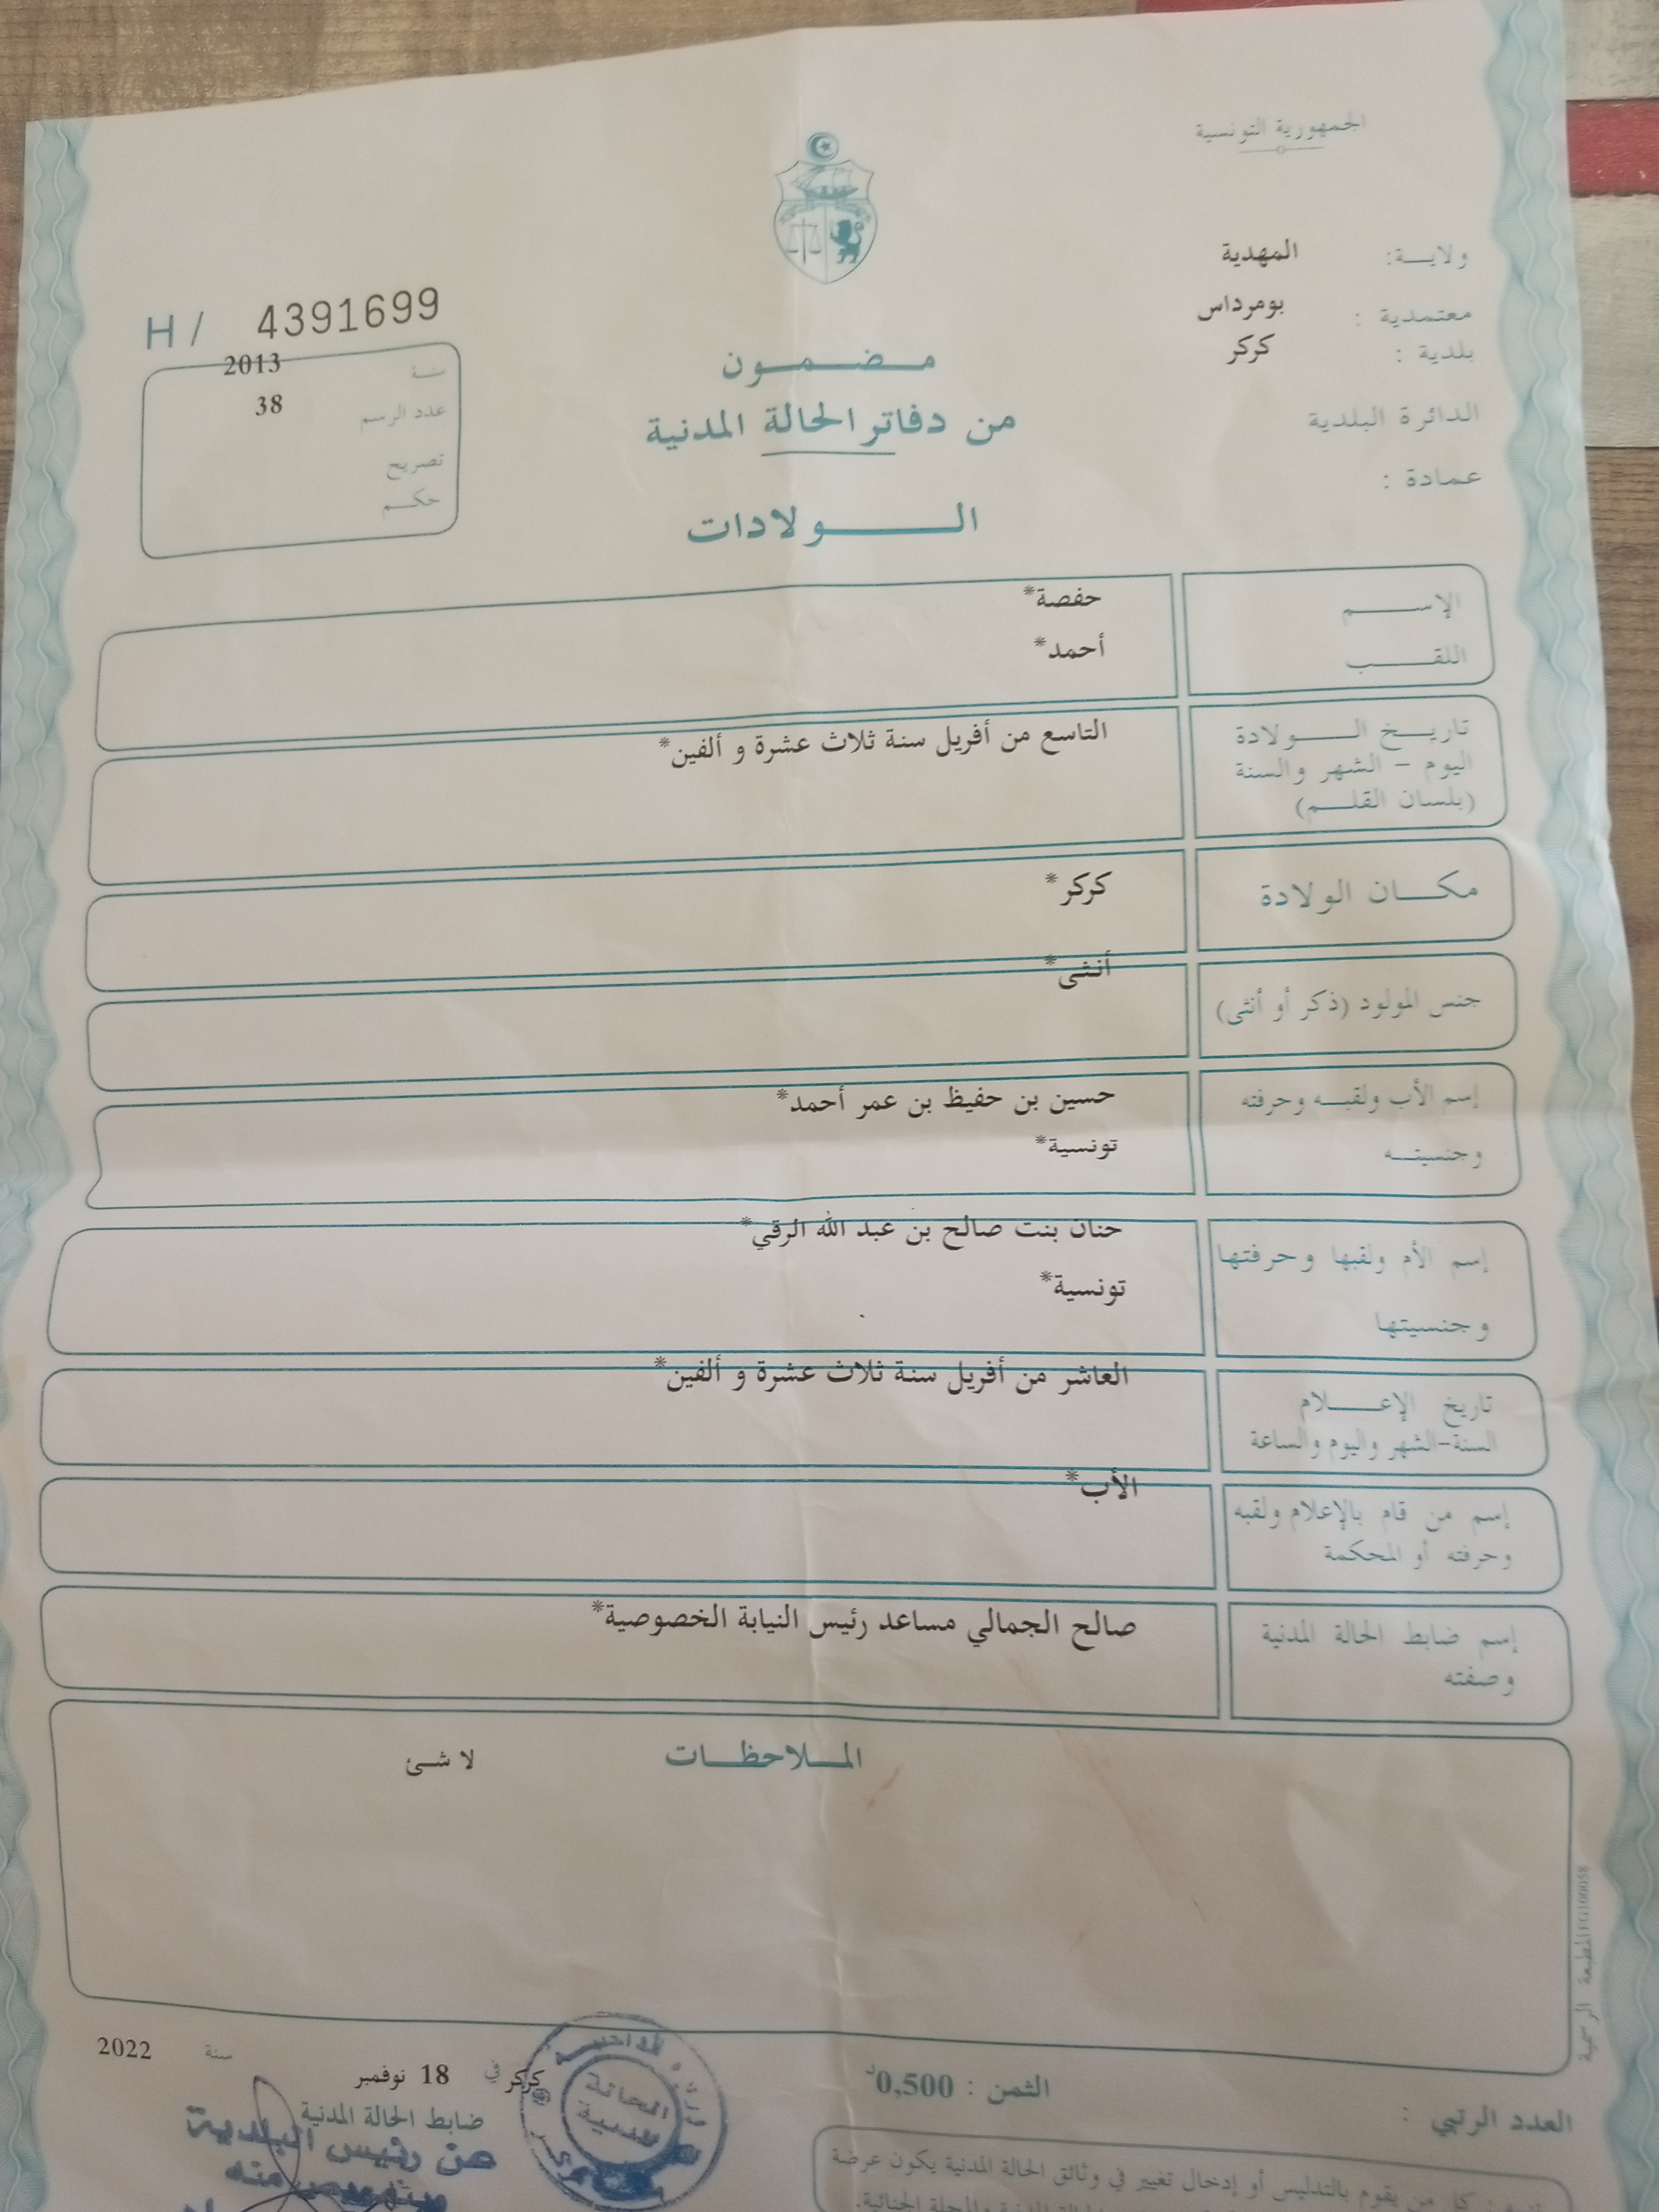 الجمهورية التونسية
ولايـــة: المهدية
معتمدية : بومرداس
بلدية : كركر
الدائرة البلدية
عمادة :
H / 4391699
سنـة 2013
عدد الرسم 38
تصريح
حكـــم
مــضــمــون
من دفاتر الحالة المدنية
الـــولادات
الإســـم حفصة*
اللقـــب أحمد*
تاريــخ الـــولادة التاسع من أفريل سنة ثلاث عشرة و ألفين*
اليوم - الشهر والسنة
(بلسان القلـــم)
مكـــان الولادة كركر*
جنس المولود (ذكر أو أنثى) أنثى*
إسم الأب ولقبــه وحرفته حسين بن حفيظ بن عمر أحمد*
وجنسيتــه تونسية*
إسم الأم ولقبها وحرفتها حنان بنت صالح بن عبد الله الرقي*
وجنسيتها تونسية*
تاريخ الإعـــلام العاشر من أفريل سنة ثلاث عشرة و ألفين*
السنة-الشهر واليوم والساعة
إسم من قام بالإعلام ولقبه الأب*
وحرفته أو المحكمة
إسم ضابط الحالة المدنية صالح الجمالي مساعد رئيس النيابة الخصوصية*
وصفته
المــلاحظــات لا شئ
المطبعة الرسمية
كركر في 18 نوفمبر سنة 2022
ضابط الحالة المدنية
عن رئيس البلدية
الحالة
المدنية
كركر
الثمن : 0,500د
العدد الرتبي :
كل من يقوم بالتدليس أو إدخال تغيير في وثائق الحالة المدنية يكون عرضة
المدنية والمجلة الجنائية.